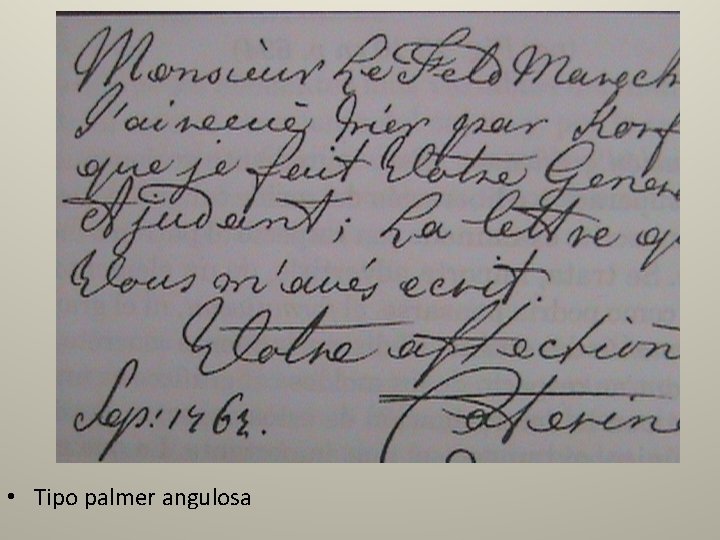 Monsieur Le Feld Marech
J'ai recuè hier par Korf
que je fait Votre Gener
Adjudant; La lettre q
Vous m'avés ecrit.
Votre affection
Sep: 1762. Caterine
• Tipo palmer angulosa